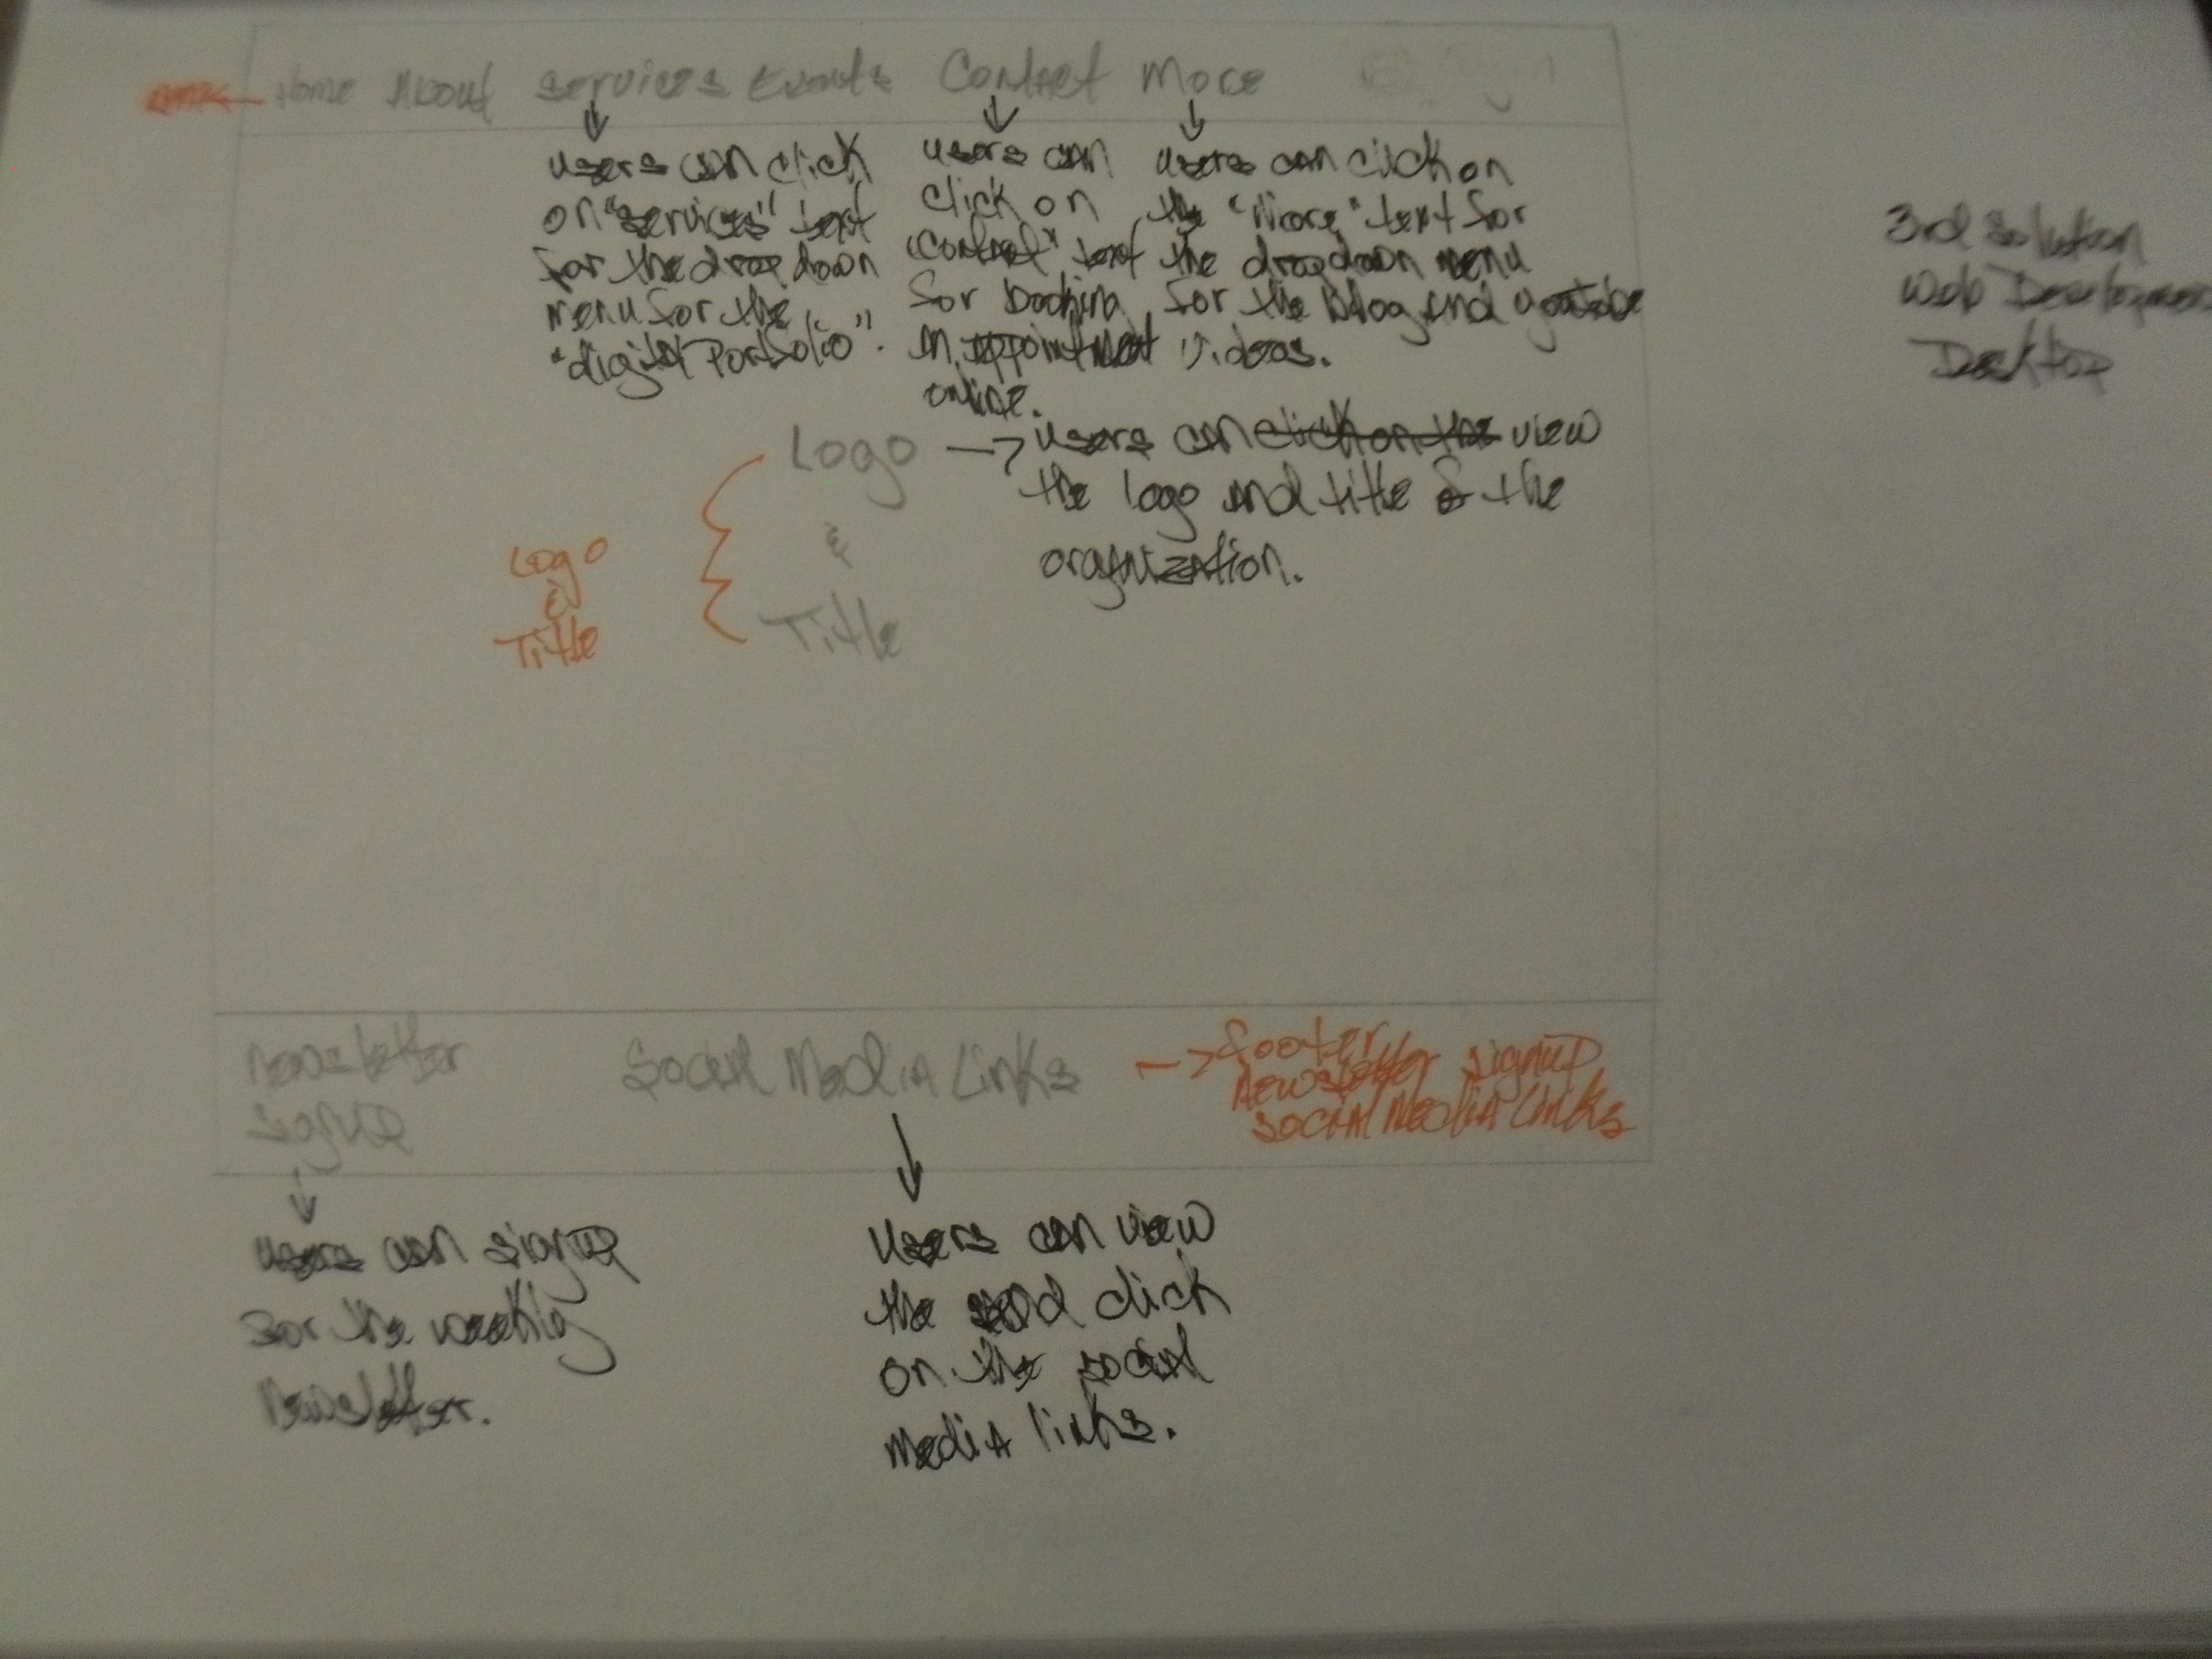 Home About Services Events Contact More
users can click
on "services" text
for the drop down
menu for the
"digital Portfolio".
users can
click on
"Contact" text
for booking
an appointment
online.
users can click on
the "More" text for
the dropdown menu
for the Blog and youtube
videos.
3rd solution
Web Development
Desktop
Logo
&
Title
users can click on the view
the logo and title of the
organization.
Logo
&
Title
Newsletter
signup
Social Media Links
footer
Newsletter signup
social Media Links
users can signup
for the weekly
Newsletter.
Users can view
the and click
on the social
Media links.